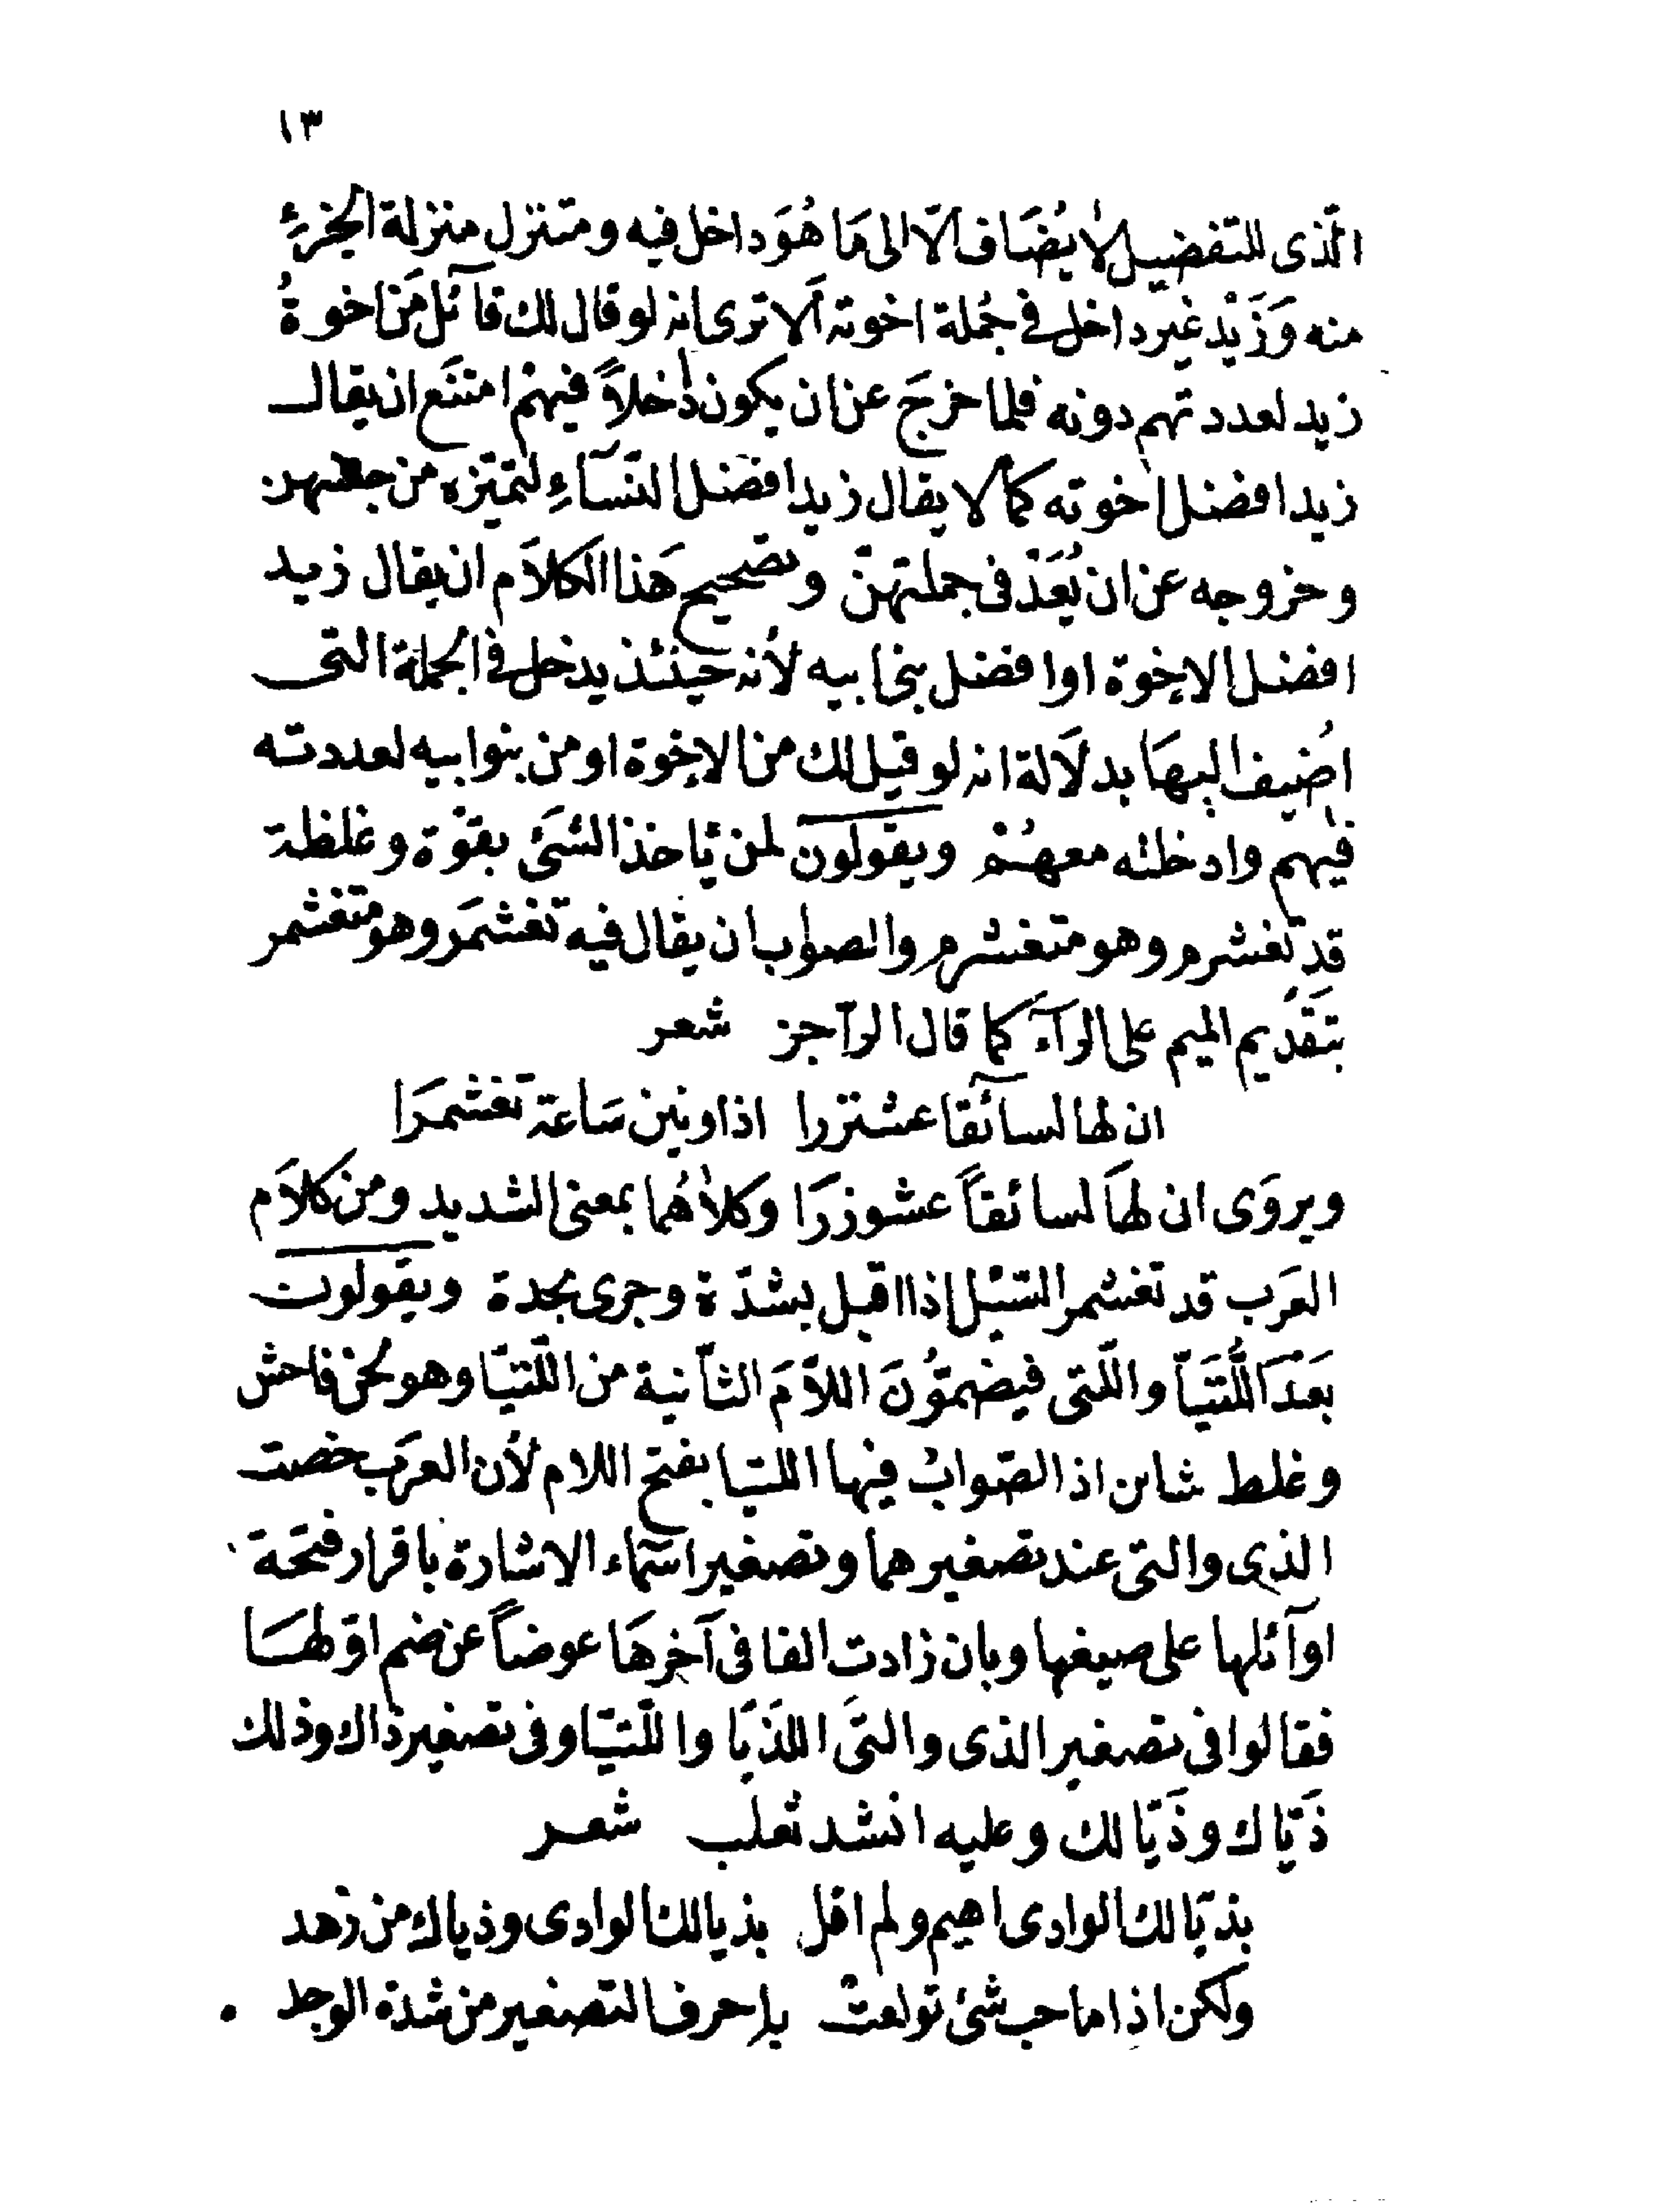 ١٣
الّذى للتفضيل لا يُضَاف الّا الى مَا هُوَ داخل فيه ومتنزل منزلة الجزءِ
منه وَزَيْد غير داخل فى جُملة اخوته الا ترى انه لو قال لك قآئل مَن اخوةُ
زيد لعددتهم دونه فلما خرجَ عن ان يكون داخلاً فيهمْ امتنَع ان يقال
زيد افضل اخوته كما لا يقال زيد افضل النسَآءِ لتميّزه من جنسهن
وخروجه عن ان يُعَدّ فى جملتهنّ وتصحيح هَذا الكلاَم ان يقال زيد
افضل الاخوة او افضل بنى ابيه لأنه حينئذ يدخل فى الجملة التى
اضُيف اليهَا بدلاَلة انه لو قيل لك من الاخوة او من بنوا ابيه لعددته
فيهم وادخلته معهُمْ ويقولون لمن يأخذ الشئ بقوّة وغلظة
قد تغشرم وهو متغشرم والصواب ان يقال فيه تغشمَر وهو متغشمر
بتَقدُيم الميم على الرآءَ كما قال الرّاجز شعر
ان لها لسآئقا عشنزرا اذا ونين سَاعة تغشمَرَا
ويروَى ان لهَا لسائقاً عشوزرَا وكلاهُما بمعنى الشديد ومن كلاَم
العَرب قد تغشمر السّيل اذا اقبل بشدّة وجرى بحدة ويقولون
بَعْدَ اللُّتَيَّا والّتى فيضمّوُنَ اللاّمَ الثاّنية من اللّتيّا وهو لحن فاحش
وغلط شاين اذ الصّوابُ فيها اللتيا بفتح اللام لأن العرَب خصت
الذى والتى عند تصغيرهما وتصغير اسمآء الاشارة باقرار فتحة
اوآئلها على صيغها وبان زادت الفا فى آخرهَا عوضاً عن ضم اوّلهَا
فقالوا فى تصغير الذى والتىَ اللّذَيّا واللّتيّا وفى تصغير ذاك وذلك
ذَيّاك وذَيّالك وعليه انشد ثعلب شعر
بذيّالك الوادى اهيم ولم اقل بذيالك الوادى وذياك من زهد
ولكن اذا ما حب شئ تولعت به احرف التصغير من شدة الوجد